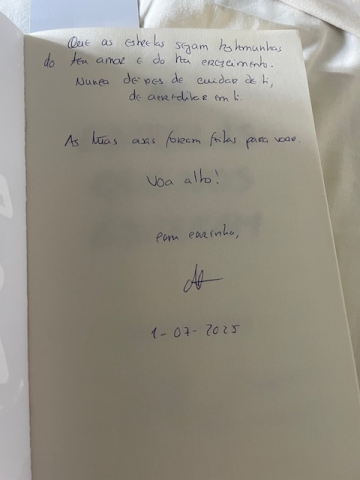 Que as estrelas sejam testemunhas
do teu amor e do teu crescimento.
Nunca deixes de cuidar de ti,
de acreditar em ti.
As tuas asas foram feitas para voar.
Voa alto!
com carinho,
1-07-2025